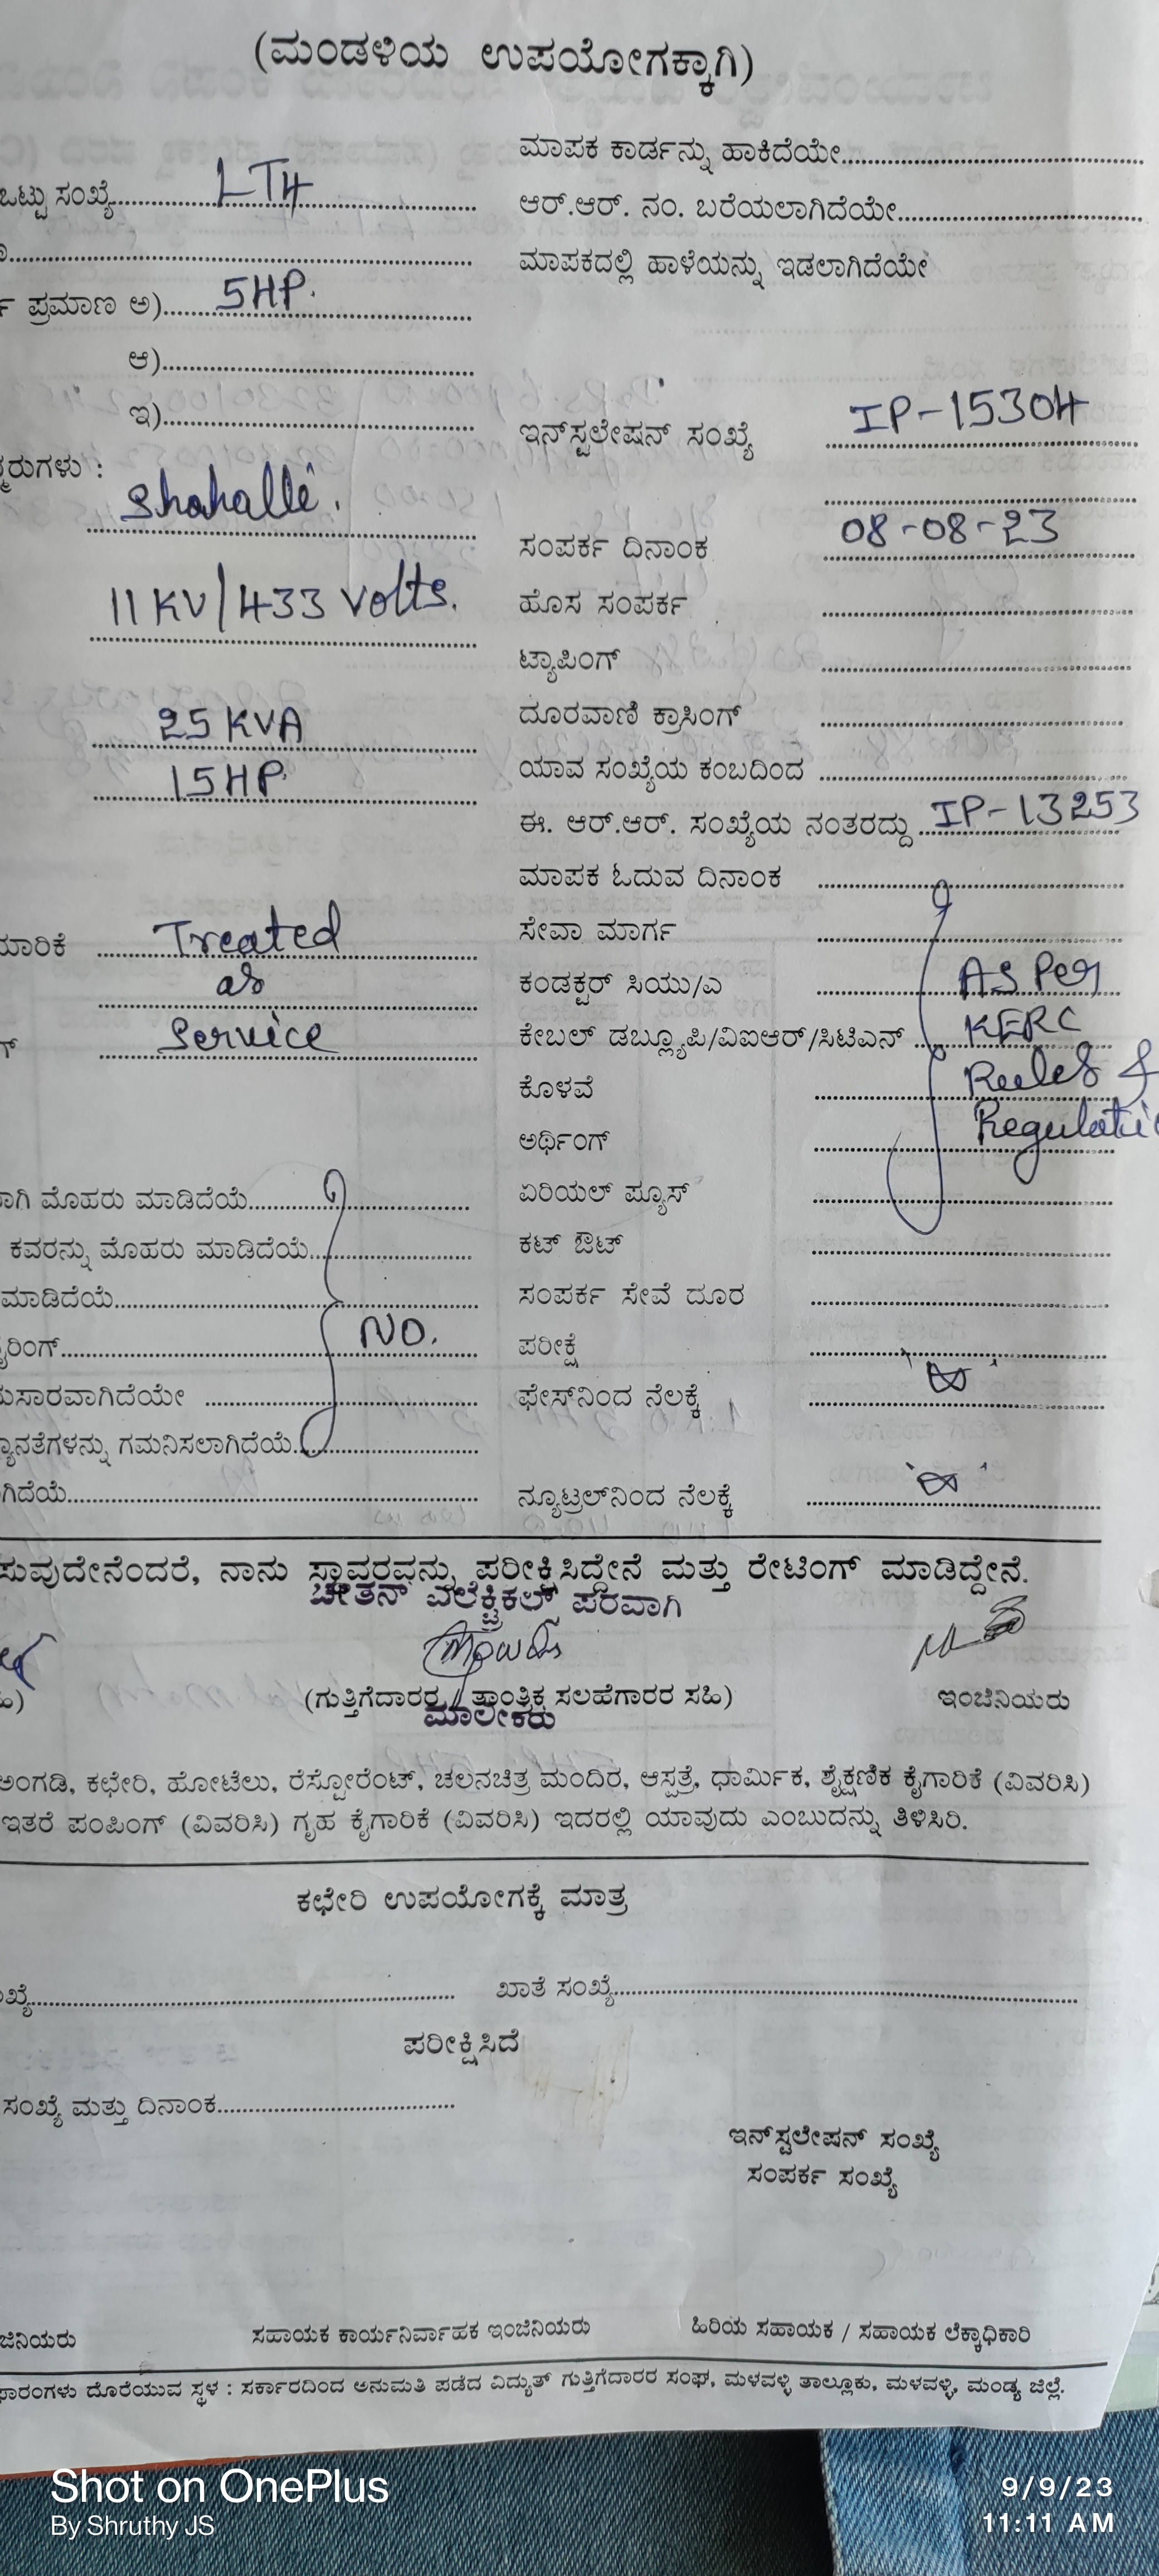 (ಮಂಡಳಿಯ ಉಪಯೋಗಕ್ಕಾಗಿ)
ಮಾಪಕ ಕಾರ್ಡನ್ನು ಹಾಕಿದೆಯೇ
ಒಟ್ಟು ಸಂಖ್ಯೆ LT4
ಆರ್.ಆರ್. ನಂ. ಬರೆಯಲಾಗಿದೆಯೇ
ಮಾಪಕದಲ್ಲಿ ಹಾಳೆಯನ್ನು ಇಡಲಾಗಿದೆಯೇ
ಪ್ರಮಾಣ ಅ) 5HP.
ಆ)
ಇ)
ಇನ್‌ಸ್ಟಲೇಷನ್ ಸಂಖ್ಯೆ IP-15304
ಸಂಪರ್ಕ ದಿನಾಂಕ 08-08-23
11 KV/433 Volts.
ಹೊಸ ಸಂಪರ್ಕ
ಟ್ಯಾಪಿಂಗ್
25 KVA
ದೂರವಾಣಿ ಕ್ರಾಸಿಂಗ್
15HP.
ಯಾವ ಸಂಖ್ಯೆಯ ಕಂಬದಿಂದ
ಈ. ಆರ್.ಆರ್. ಸಂಖ್ಯೆಯ ನಂತರದ್ದು IP-13253
ಮಾಪಕ ಓದುವ ದಿನಾಂಕ
Treated
ಸೇವಾ ಮಾರ್ಗ
as
ಕಂಡಕ್ಟರ್ ಸಿಯು/ಎ AS Per
Service
ಕೇಬಲ್ ಡಬ್ಲ್ಯೂಪಿ/ವಿಐಆರ್/ಸಿಟಿಎಸ್ KERC
ಕೊಳವೆ Rules &
ಅರ್ಥಿಂಗ್
ಮೊಹರು ಮಾಡಿದೆಯೆ
ಏರಿಯಲ್ ಫ್ಯೂಸ್
ಕವರನ್ನು ಮೊಹರು ಮಾಡಿದೆಯೆ
ಕಟ್ ಔಟ್
ಮಾಡಿದೆಯೆ
ಸಂಪರ್ಕ ಸೇವೆ ದೂರ
NO.
ಪರೀಕ್ಷೆ
ಫೇಸ್‌ನಿಂದ ನೆಲಕ್ಕೆ
ಗಮನಿಸಲಾಗಿದೆಯೆ
ನ್ಯೂಟ್ರಲ್‌ನಿಂದ ನೆಲಕ್ಕೆ
ನಾನು ಸ್ಥಾವರವನ್ನು ಪರೀಕ್ಷಿಸಿದ್ದೇನೆ ಮತ್ತು ರೇಟಿಂಗ್ ಮಾಡಿದ್ದೇನೆ.
ಚೇತನ್ ಎಲೆಕ್ಟ್ರಿಕಲ್ಸ್ ಪರವಾಗಿ
(ಗುತ್ತಿಗೆದಾರರ / ತಾಂತ್ರಿಕ ಸಲಹೆಗಾರರ ಸಹಿ)
ಇಂಜಿನಿಯರು
ಮಾಲೀಕರು
ಅಂಗಡಿ, ಕಛೇರಿ, ಹೋಟೆಲು, ರೆಸ್ಟೋರೆಂಟ್, ಚಲನಚಿತ್ರ ಮಂದಿರ, ಆಸ್ಪತ್ರೆ, ಧಾರ್ಮಿಕ, ಶೈಕ್ಷಣಿಕ ಕೈಗಾರಿಕೆ (ವಿವರಿಸಿ)
ಇತರೆ ಪಂಪಿಂಗ್ (ವಿವರಿಸಿ) ಗೃಹ ಕೈಗಾರಿಕೆ (ವಿವರಿಸಿ) ಇದರಲ್ಲಿ ಯಾವುದು ಎಂಬುದನ್ನು ತಿಳಿಸಿರಿ.
ಕಛೇರಿ ಉಪಯೋಗಕ್ಕೆ ಮಾತ್ರ
ಖಾತೆ ಸಂಖ್ಯೆ
ಪರೀಕ್ಷಿಸಿದೆ
ಸಂಖ್ಯೆ ಮತ್ತು ದಿನಾಂಕ
ಇನ್‌ಸ್ಟಲೇಷನ್ ಸಂಖ್ಯೆ
ಸಂಪರ್ಕ ಸಂಖ್ಯೆ
ಸಹಾಯಕ ಕಾರ್ಯನಿರ್ವಾಹಕ ಇಂಜಿನಿಯರು
ಹಿರಿಯ ಸಹಾಯಕ / ಸಹಾಯಕ ಲೆಕ್ಕಾಧಿಕಾರಿ
ದೊರೆಯುವ ಸ್ಥಳ : ಸರ್ಕಾರದಿಂದ ಅನುಮತಿ ಪಡೆದ ವಿದ್ಯುತ್ ಗುತ್ತಿಗೆದಾರರ ಸಂಘ, ಮಳವಳ್ಳಿ ತಾಲ್ಲೂಕು, ಮಳವಳ್ಳಿ, ಮಂಡ್ಯ ಜಿಲ್ಲೆ.
Shot on OnePlus
By Shruthy JS
9/9/23
11:11 AM